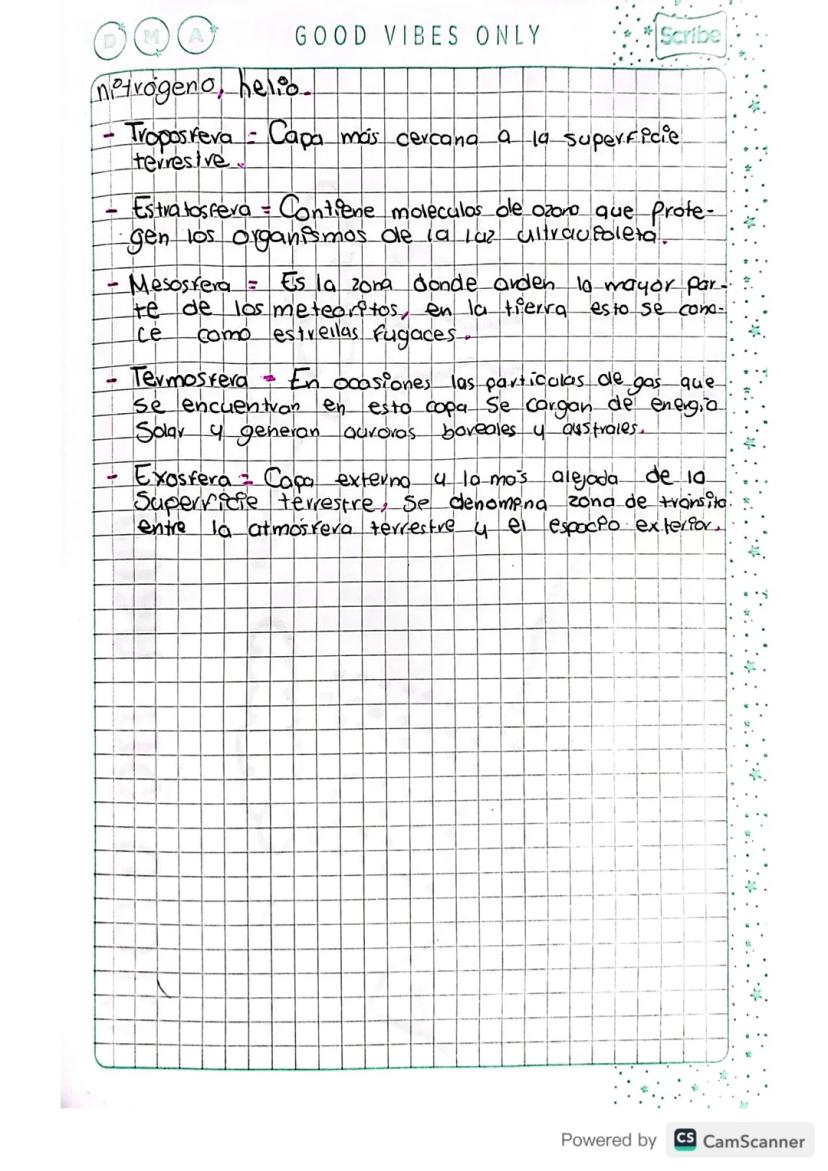 D M A GOOD VIBES ONLY Scribe
nitrógeno, helio.
- Troposfera = Capa más cercana a la superficie
terrestre.
- Estratosfera = Contiene moleculas de ozono que prote-
gen los organismos de la luz ultravioleta.
- Mesosfera = Es la zona donde arden la mayor par-
te de los meteoritos, en la tierra esto se cono-
ce como estrellas fugaces.
- Termosfera = En ocasiones las particulas de gas que
se encuentran en esta capa se cargan de energia
Solar y generan auroras boreales y australes.
- Exosfera = Capa externa y la más alejada de la
Superficie terrestre, se denomina zona de tránsito
entre la atmósfera terrestre y el espacio exterior.
Powered by CS CamScanner